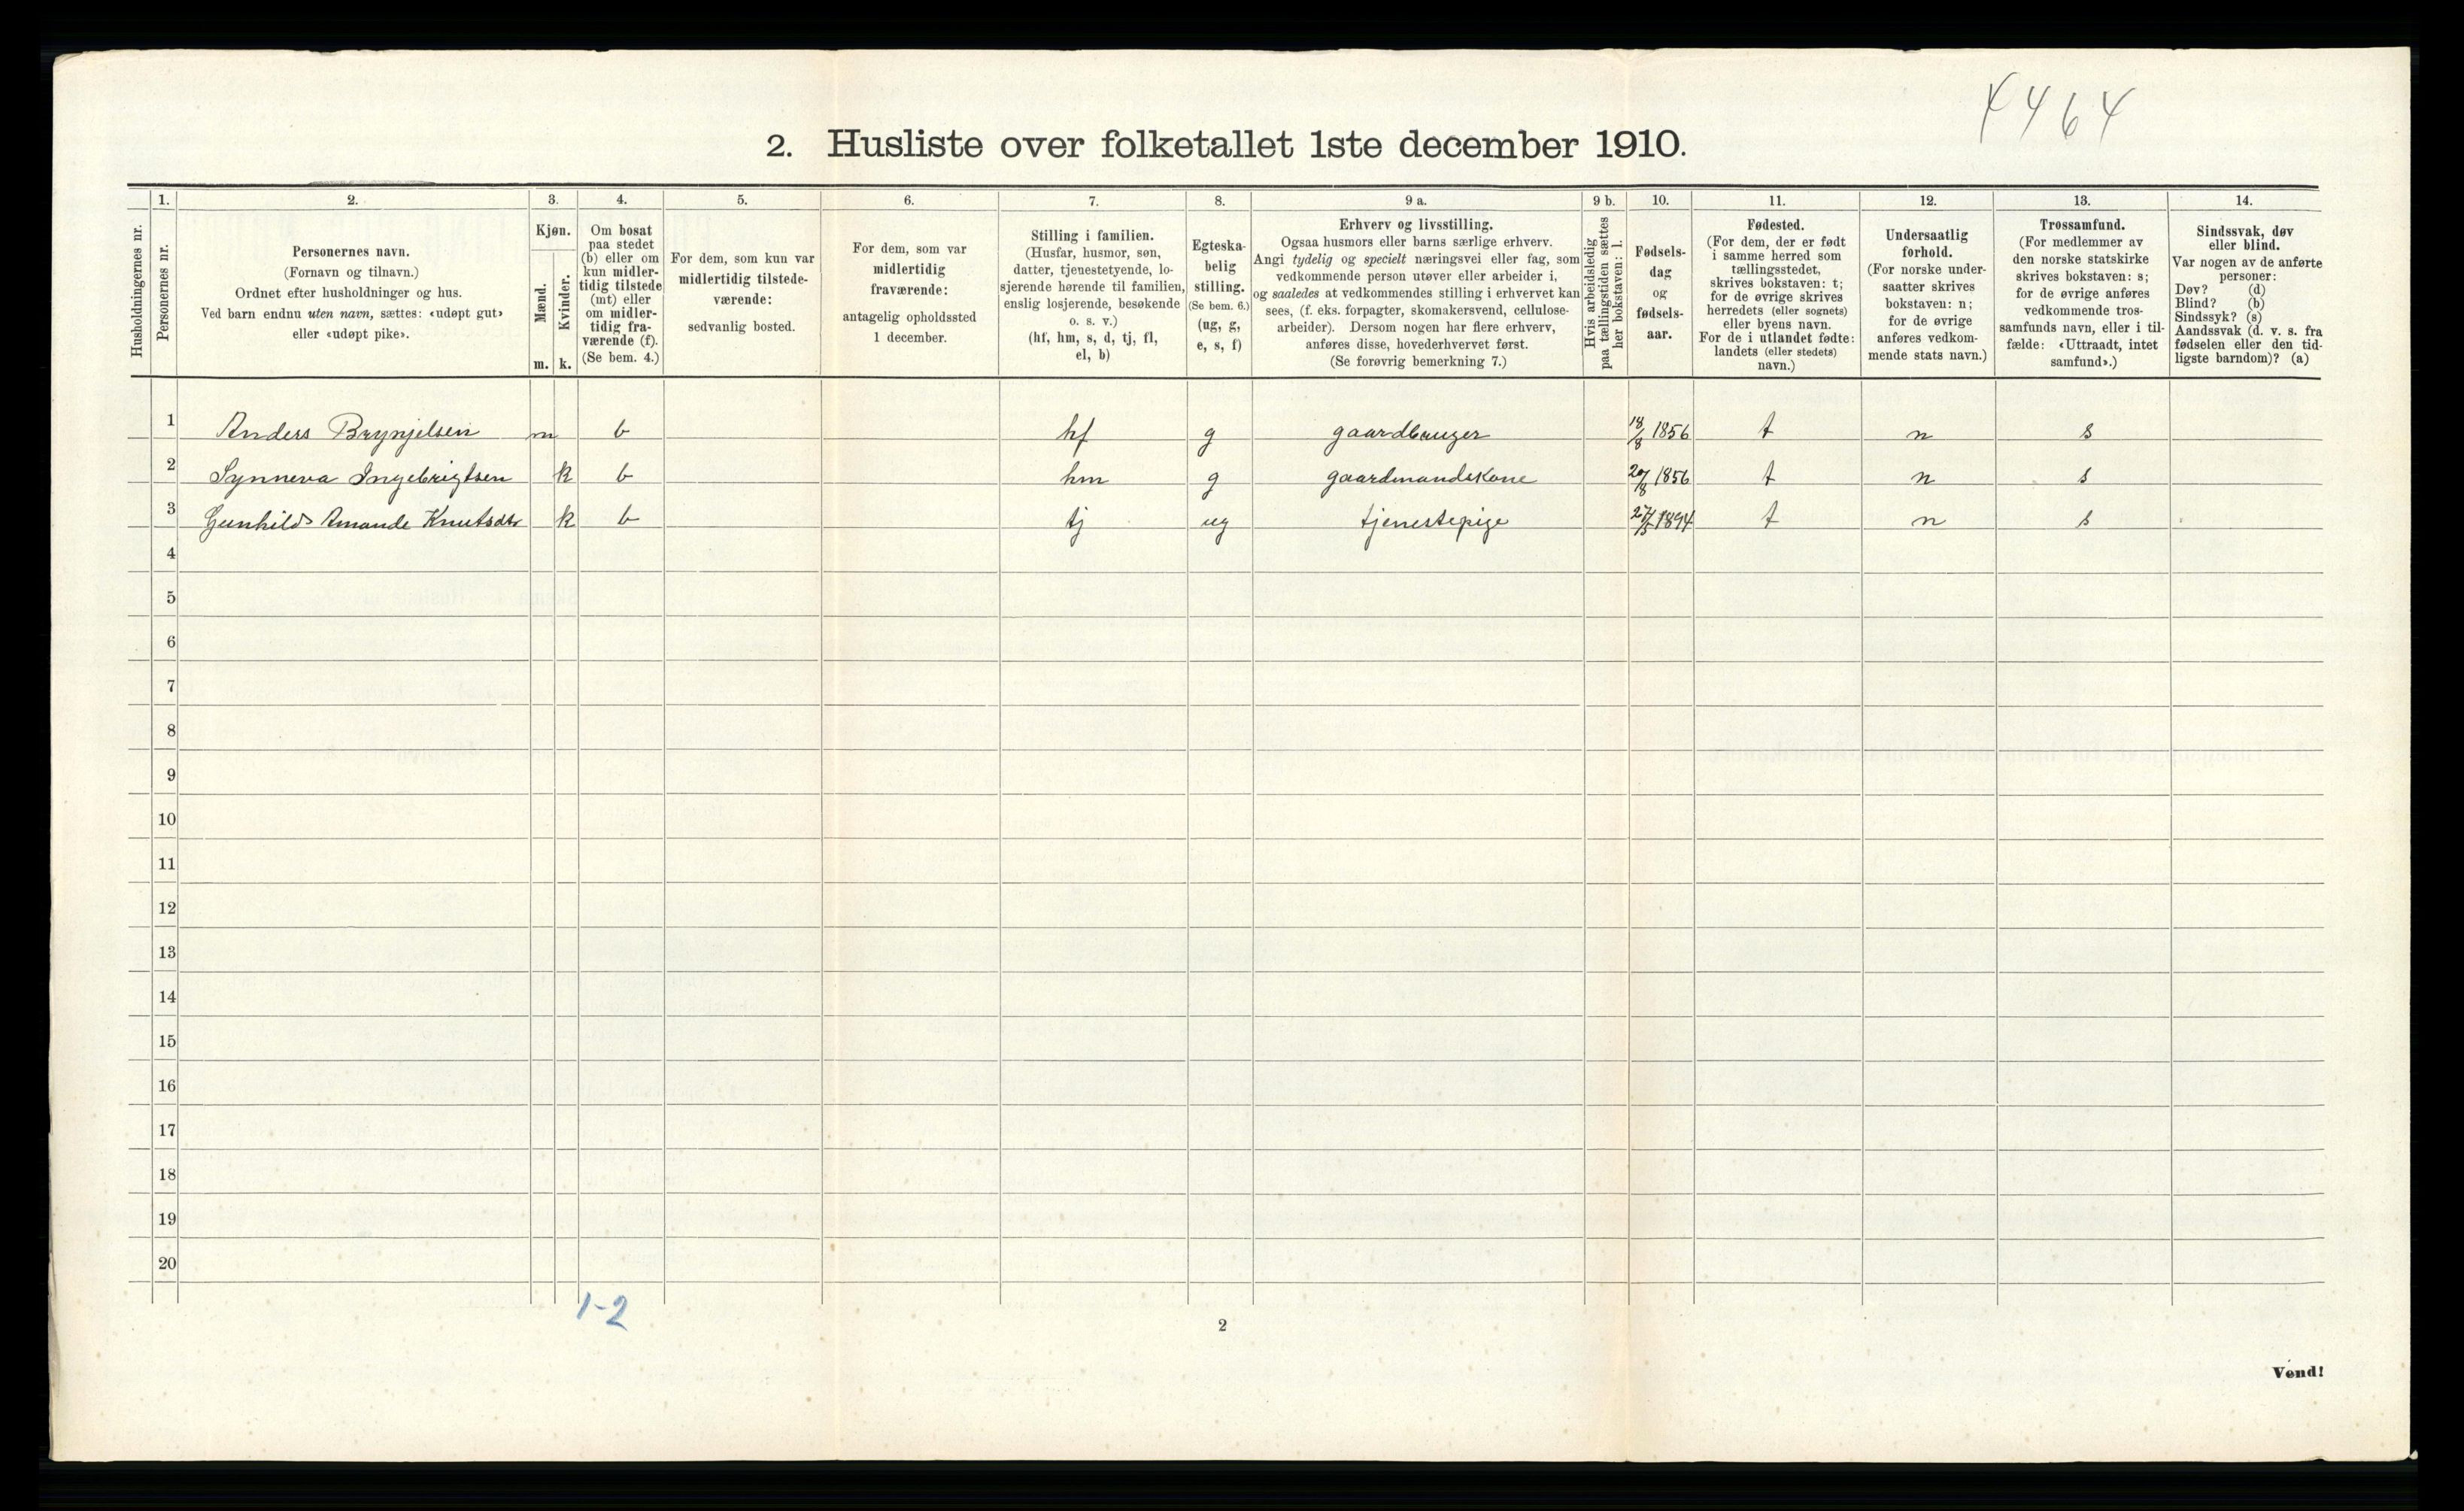 4464
2. Husliste over folketallet 1ste december 1910.
Husholdningernes nr.
1.
Personernes nr.
2.
Personernes navn.
(Fornavn og tilnavn.)
Ordnet efter husholdninger og hus.
Ved barn endnu uten navn, sættes: «udøpt gut»
eller «udøpt pike».
3.
Kjøn.
Mænd.
m.
Kvinder.
k.
4.
Om bosat
paa stedet
(b) eller om
kun midler-
tidig tilstede
(mt) eller
om midler-
tidig fra-
værende (f).
(Se bem. 4.)
5.
For dem, som kun var
midlertidig tilstede-
værende:
sedvanlig bosted.
6.
For dem, som var
midlertidig
fraværende:
antagelig opholdssted
1 december.
7.
Stilling i familien.
(Husfar, husmor, søn,
datter, tjenestetyende, lo-
sjerende hørende til familien,
enslig losjerende, besøkende
o. s. v.)
(hf, hm, s, d, tj, fl,
el, b)
8.
Egteska-
belig
stilling.
(Se bem. 6.)
(ug, g,
e, s, f)
9 a.
Erhverv og livsstilling.
Ogsaa husmors eller barns særlige erhverv.
Angi tydelig og specielt næringsvei eller fag, som
vedkommende person utøver eller arbeider i,
og saaledes at vedkommendes stilling i erhvervet kan
sees, (f. eks. forpagter, skomakersvend, cellulose-
arbeider). Dersom nogen har flere erhverv,
anføres disse, hovederhvervet først.
(Se forøvrig bemerkning 7.)
9 b.
Hvis arbeidsledig
paa tællingstiden sættes
her bokstaven: l.
10.
Fødsels-
dag
og
fødsels-
aar.
11.
Fødested.
(For dem, der er født
i samme herred som
tællingsstedet,
skrives bokstaven: t;
for de øvrige skrives
herredets (eller sognets)
eller byens navn.
For de i utlandet fødte:
landets (eller stedets)
navn.)
12.
Undersaatlig
forhold.
(For norske under-
saatter skrives
bokstaven: n;
for de øvrige
anføres vedkom-
mende stats navn.)
13.
Trossamfund.
(For medlemmer av
den norske statskirke
skrives bokstaven: s;
for de øvrige anføres
vedkommende tros-
samfunds navn, eller i til-
fælde: «Uttraadt, intet
samfund».)
14.
Sindssvak, døv
eller blind.
Var nogen av de anførte
personer:
Døv? (d)
Blind? (b)
Sindssyk? (s)
Aandssvak (d. v. s. fra
fødselen eller den tid-
ligste barndom)? (a)
1 Anders Brynjelsen m b hf g gaardbruger 18/8 1856 t n s
2 Synneva Ingebrigtsen k b hm g gaardmandskone 1856 t n s
3 Gunhild Amande Knutsdtr k b tj ug tjenestepige 27/5 1894 t n s
4
5
6
7
8
9
10
11
12
13
14
15
16
17
18
19
20
1-2
2
Vend!